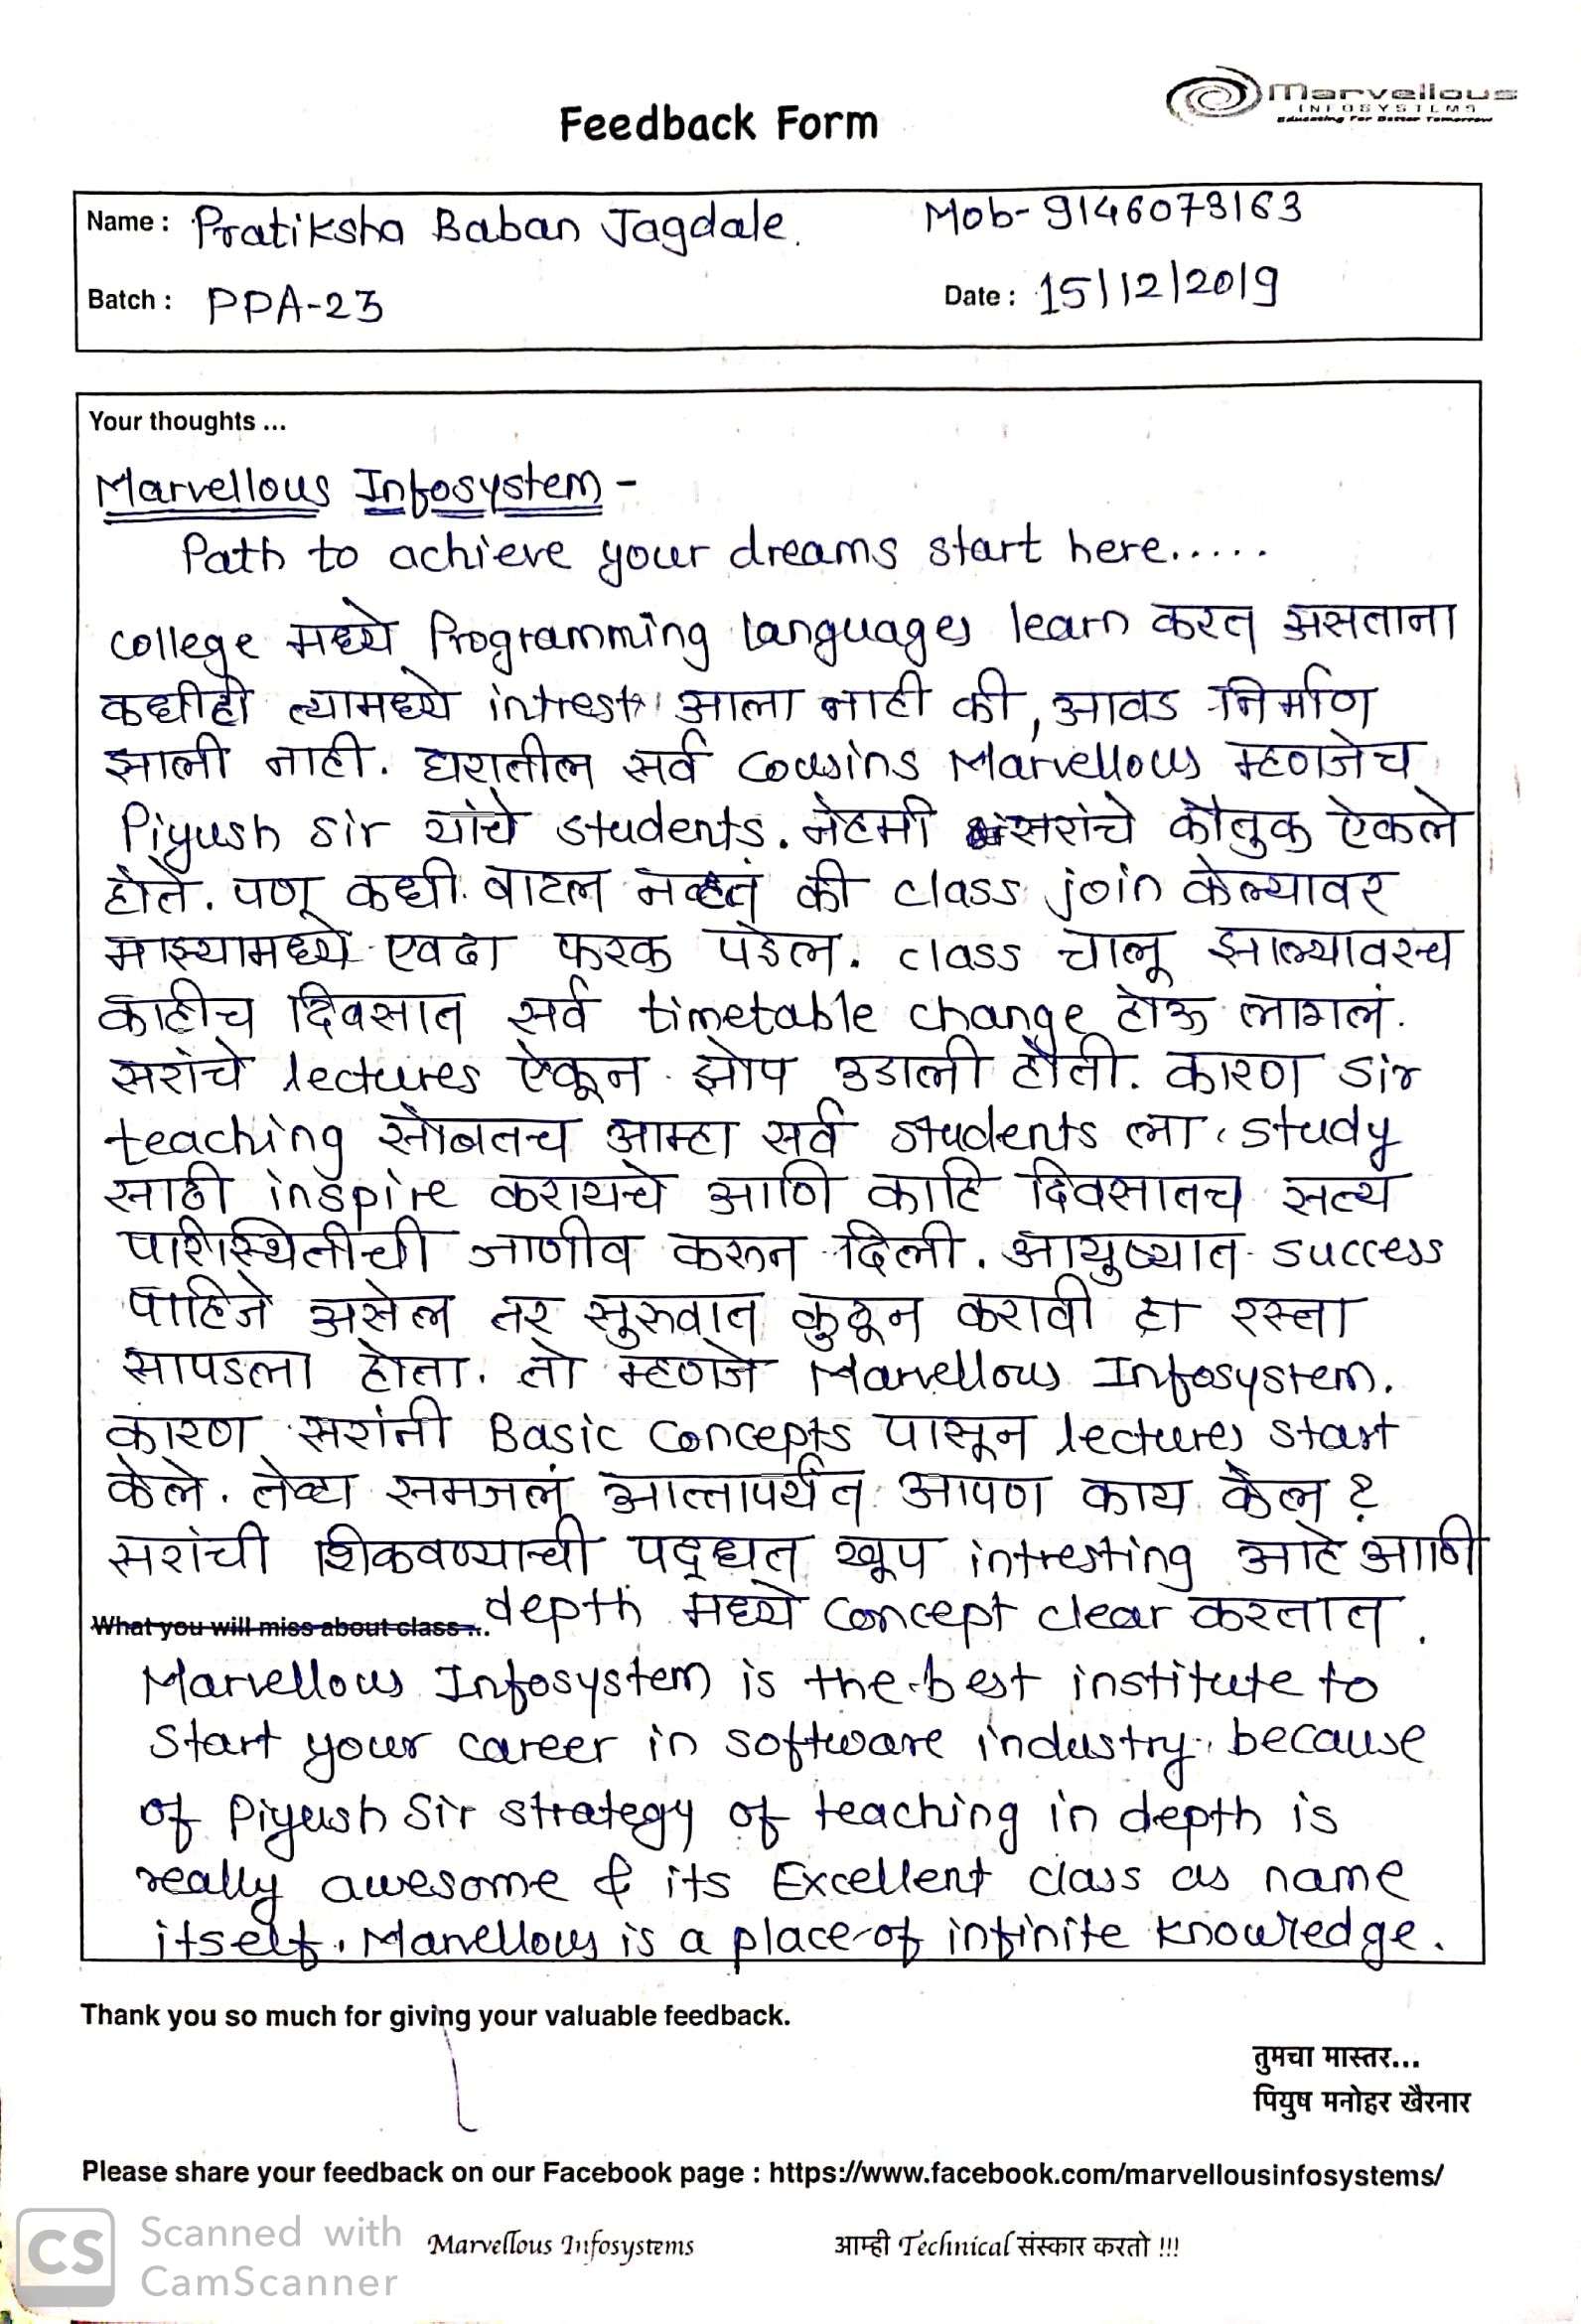 Marvellous
INFOSYSTEMS
Educating For Better Tomorrow
Feedback Form
Name : Pratiksha Baban Jagdale. Mob- 9146073163
Batch : PPA-23 Date : 15/12/2019
Your thoughts ...
Marvellous Infosystem -
Path to achieve your dreams start here.....
college मध्ये Programming languages learn करत असताना
कधीही त्यामध्ये intrest आला नाही की, आवड निर्माण
झाली नाही. घरातील सर्व cousins Marvellous म्हणजेच
Piyush sir यांचे students. नेहमी सरांचे कौतुक ऐकले
होते. पण कधी वाटल नव्हतं की class join केल्यावर
माझ्यामध्ये एवढा फरक पडेल. class चालू झाल्यावरच
काहीच दिवसात सर्व timetable change होऊ लागलं.
सरांचे lectures ऐकून झोप उडाली होती. कारण sir
teaching सोबतच आम्हा सर्व students ला study
साठी inspire करायचे आणि काहि दिवसातच सत्य
परिस्थितीची जाणीव करून दिली. आयुष्यात success
पाहिजे असेल तर सुरुवात कुठून करावी हा रस्ता
सापडला होता. तो म्हणजे Marvellous Infosystem.
कारण सरांनी Basic Concepts पासून lectures start
केले. तेव्हा समजलं आत्तापर्यंत आपण काय केल ?
सरांची शिकवण्याची पद्धत खूप intresting आहे आणि
What you will miss about class ... depth मध्ये concept clear करतात.
Marvellous Infosystem is the best institute to
start your career in software industry because
of Piyush Sir strategy of teaching in depth is
really awesome & its Excellent class as name
itself. Marvellous is a place of infinite knowledge.
Thank you so much for giving your valuable feedback.
तुमचा मास्तर...
पियुष मनोहर खैरनार
Please share your feedback on our Facebook page : https://www.facebook.com/marvellousinfosystems/
CS Scanned with
CamScanner
Marvellous Infosystems आम्ही Technical संस्कार करतो !!!